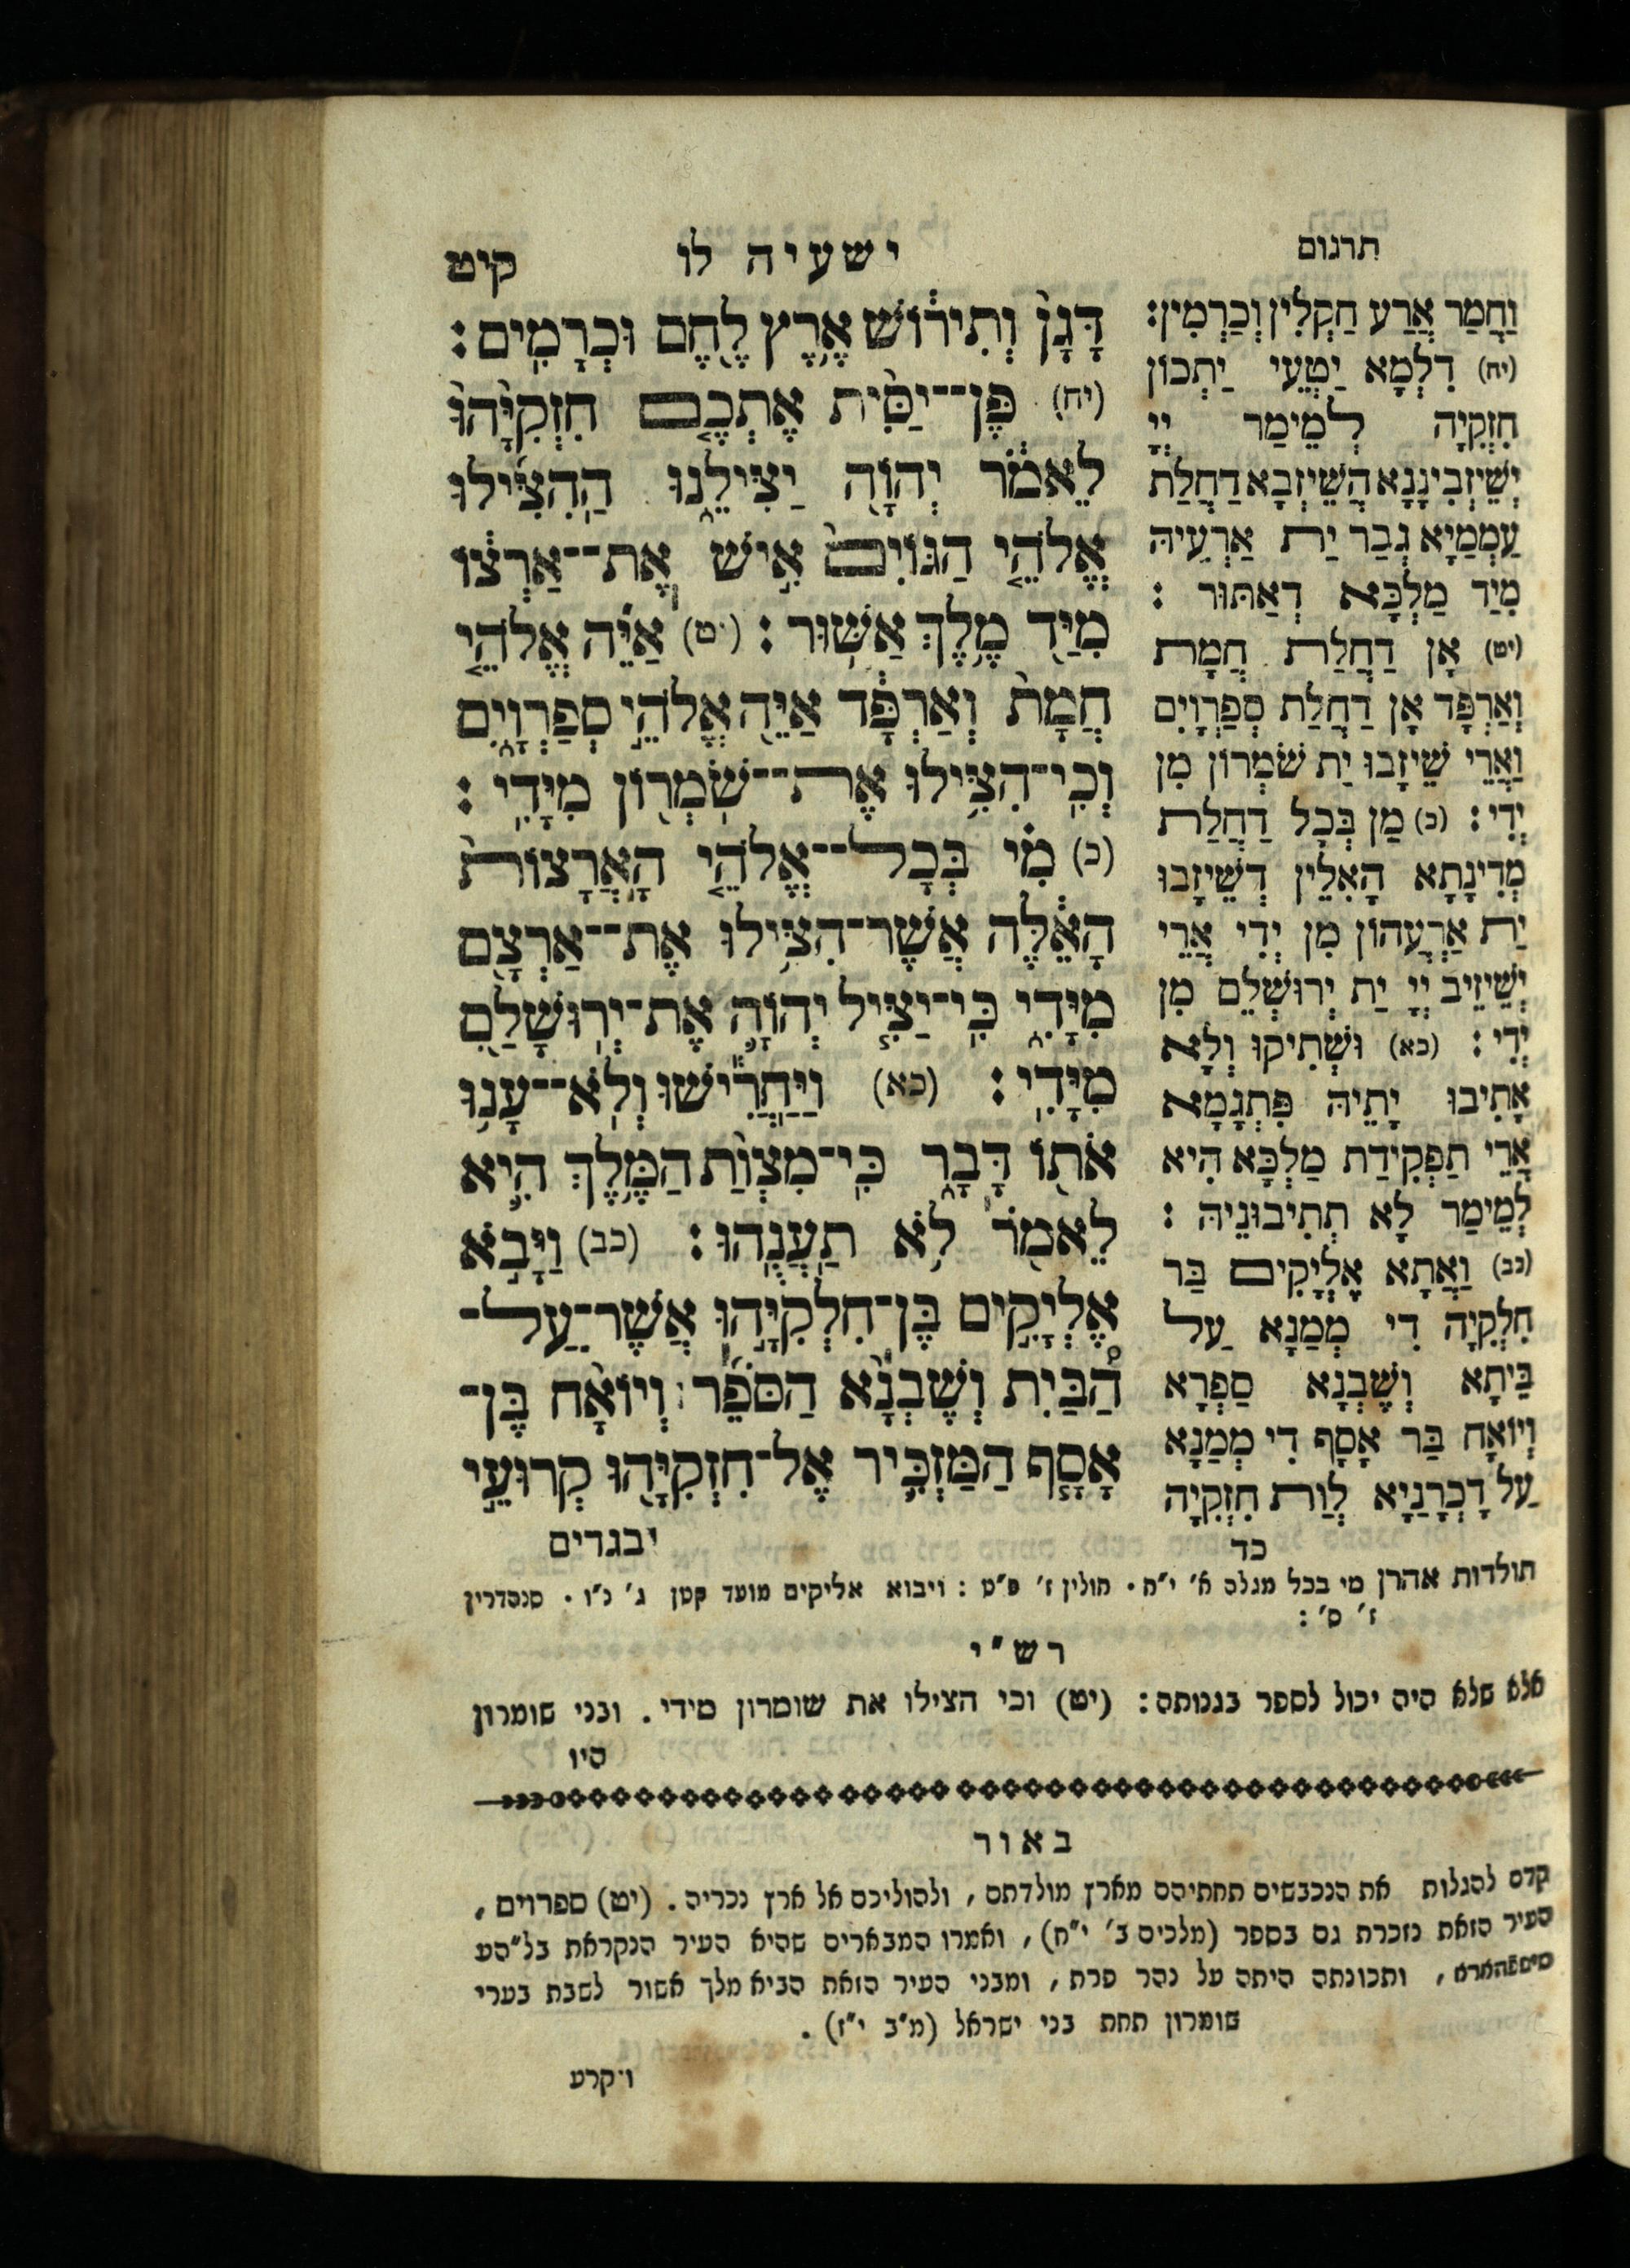 תרגום
ישעיה לו
קיט
וַחֲמַר אֲרַע חַקְלִין וְכַרְמִין:
(יח) דִלְמָא יַטְעֵי יַתְכוֹן
חִזְקִיָה לְמֵימַר יְיָ
יְשֵׁיזְבִינָנָא הֲשֵׁיזְבָא דַחֲלַת
עַמְמַיָא גְבַר יַת אַרְעֵיהּ
מִיַד מַלְכָּא דְאַתּוּר :
(יט) אָן דַחֲלַת חֲמָת
וְאַרְפָּד אָן דַחֲלַת סְפַרְוָיִם
וַאֲרֵי שֵׁיזָבוּ יַת שֹׁמְרוֹן מִן
יְדִי : (כ) מַן בְּכָל דַחֲלַת
מְדִינָתָא הָאִלֵין דְשֵׁיזָבוּ
יַת אַרְעֲהוֹן מִן יְדִי אֲרֵי
יְשֵׁיזֵיב יְיָ יַת יְרוּשְׁלֵם מִן
יְדִי : (כא) וּשְׁתִיקוּ וְלָא
אָתִיבוּ יָתֵיהּ פִּתְגָמָא
אֲרֵי תַפְקִידַת מַלְכָּא הִיא
לְמֵימַר לָא תְתִיבוּנֵיהּ :
(כב) וַאֲתָא אֶלְיָקִים בַּר
חִלְקִיָה דִי מְמַנָא עַל
בֵּיתָא וְשֶׁבְנָא סַפְרָא
וְיוֹאָח בַּר אָסָף דִי מְמַנָא
עַל דָכְרָנַיָא לְוַת חִזְקִיָה
כד
דָּגָן וְתִירוֹשׁ אֶרֶץ לֶחֶם וּכְרָמִים :
(יח) פֶּן־יַסִּית אֶתְכֶם חִזְקִיָּהוּ
לֵאמֹר יְהוָה יַצִּילֵנוּ הַהִצִּילוּ
אֱלֹהֵי הַגּוֹיִם אִישׁ אֶת־אַרְצוֹ
מִיַּד מֶלֶךְ אַשּׁוּר : (יט) אַיֵּה אֱלֹהֵי
חֲמָת וְאַרְפָּד אַיֵּה אֱלֹהֵי סְפַרְוָיִם
וְכִי־הִצִּילוּ אֶת־שֹׁמְרוֹן מִיָּדִי :
(כ) מִי בְּכָל־אֱלֹהֵי הָאֲרָצוֹת
הָאֵלֶּה אֲשֶׁר־הִצִּילוּ אֶת־אַרְצָם
מִיָּדִי כִּי־יַצִּיל יְהוָה אֶת־יְרוּשָׁלִַם
מִיָּדִי : (כא) וַיַּחֲרִישׁוּ וְלֹא־עָנוּ
אֹתוֹ דָּבָר כִּי־מִצְוַת הַמֶּלֶךְ הִיא
לֵאמֹר לֹא תַעֲנֻהוּ : (כב) וַיָּבֹא
אֶלְיָקִים בֶּן־חִלְקִיָּהוּ אֲשֶׁר־עַל־
הַבַּיִת וְשֶׁבְנָא הַסֹּפֵר וְיוֹאָח בֶּן־
אָסָף הַמַּזְכִּיר אֶל־חִזְקִיָּהוּ קְרוּעֵי
בגדים
תולדות אהרן מי בכל מגלה א' י"ח. חולין ז' פ"ט : ויבוא אליקים מועד קטן ג' כ"ו . סנהדרין
ז' ס' :
רש"י
אלא שלא היה יכול לספר בגנותה : (יט) וכי הצילו את שומרון מידי . ובני שומרון
היו
באור
קדם להגלות את הנכבשים תחתיהם מארץ מולדתם , ולהוליכם אל ארץ נכריה . (יט) ספרוים ,
העיר הזאת נזכרת גם בספר (מלכים ב' י"ח) , ואמרו המבארים שהיא העיר הנקראת בל"הע
, ותכונתה היתה על נהר פרת , ומבני העיר הזאת הביא מלך אשור לשבת בערי
שומרון תחת בני ישראל (מ"ב י"ז) .
ויקרע